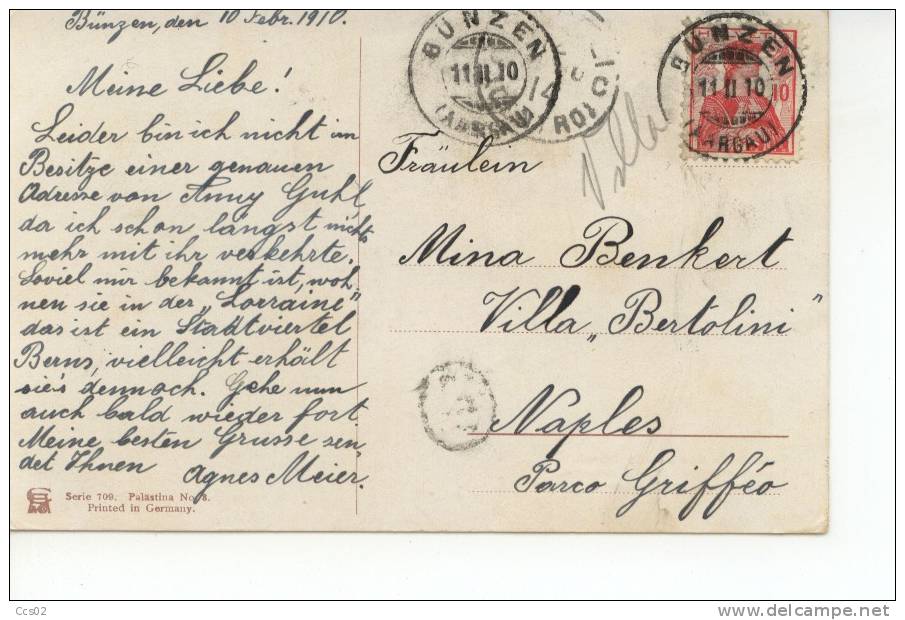 Bünzen, den 10 Febr. 1910.
Meine Liebe!
Leider bin ich nicht im
Besitze einer genauen
Adresse von Anny Guhl
da ich schon längst nichts
mehr mit ihr verkehrte.
Soviel mir bekannt ist, woh-
nen sie in der „Lorraine"
das ist ein Stadtviertel
Berns, vielleicht erhält
sie's dennoch. Gehe nun
auch bald wieder fort
Meine besten Grüsse sen
det Ihnen
Agnes Meier.
Serie 709. Palästina No. 8.
Printed in Germany.
BÜNZEN
11.II.10
(AARGAU)
BÜNZEN
11 II 10
(AARGAU)
10
Villa
Fräulein
Mina Benkert
Villa „Bertolini"
Naples
Parco Grifféo
Ccs02
www.delcampe.net